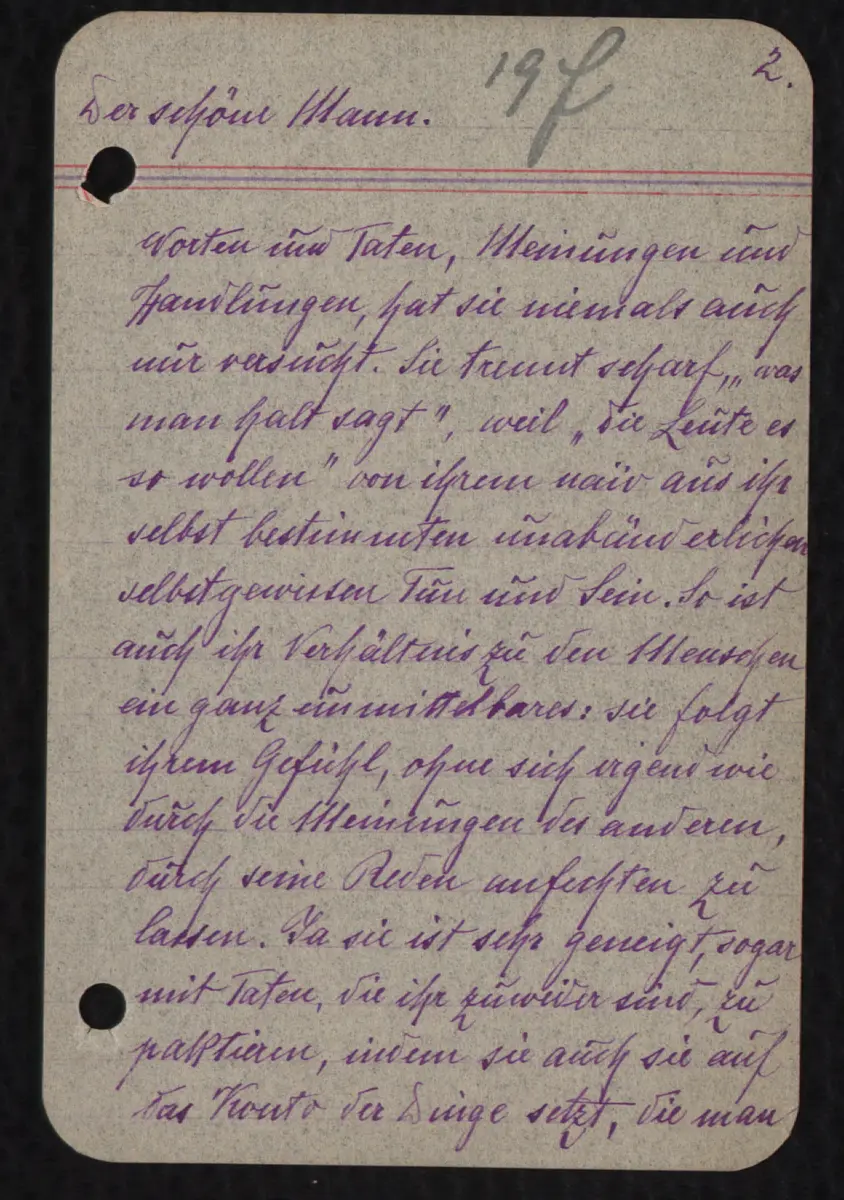 197
2.
Der schöne Mann.
Worten und Taten, Meinungen und
Handlungen, hat sie niemals auch
nur versucht. Sie trennt scharf, „was
man halt sagt", weil „die Leute es
so wollen" von ihrem naiv aus ihr
selbst bestimmten unabänderlichen
selbstgewissen Tun und Sein. So ist
auch ihr Verhältnis zu den Menschen
ein ganz unmittelbares: sie folgt
ihrem Gefühl, ohne sich irgendwie
durch die Meinungen des anderen,
durch seine Reden anfechten zu
lassen. Ja sie ist sehr geneigt, sogar
mit Taten, die ihr zuwider sind, zu
paktieren, indem sie auch sie auf
das Konto der Dinge setzt, die man